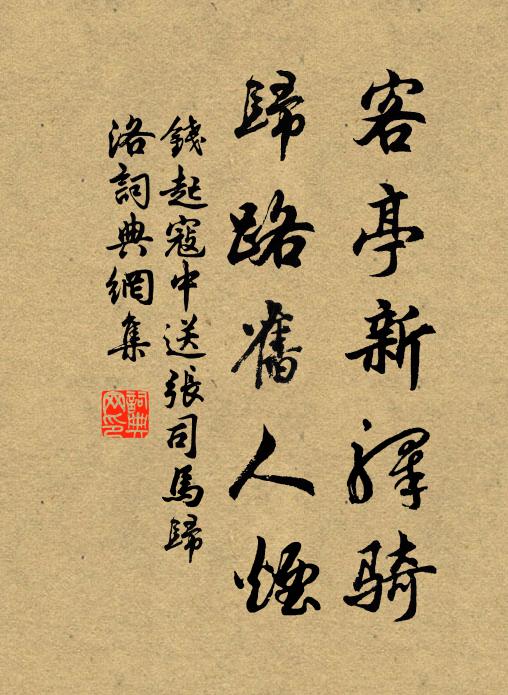 客亭新驛騎
歸路舊人煙
錢起寇中送張司馬歸
洛詞典網集
詞典
网印